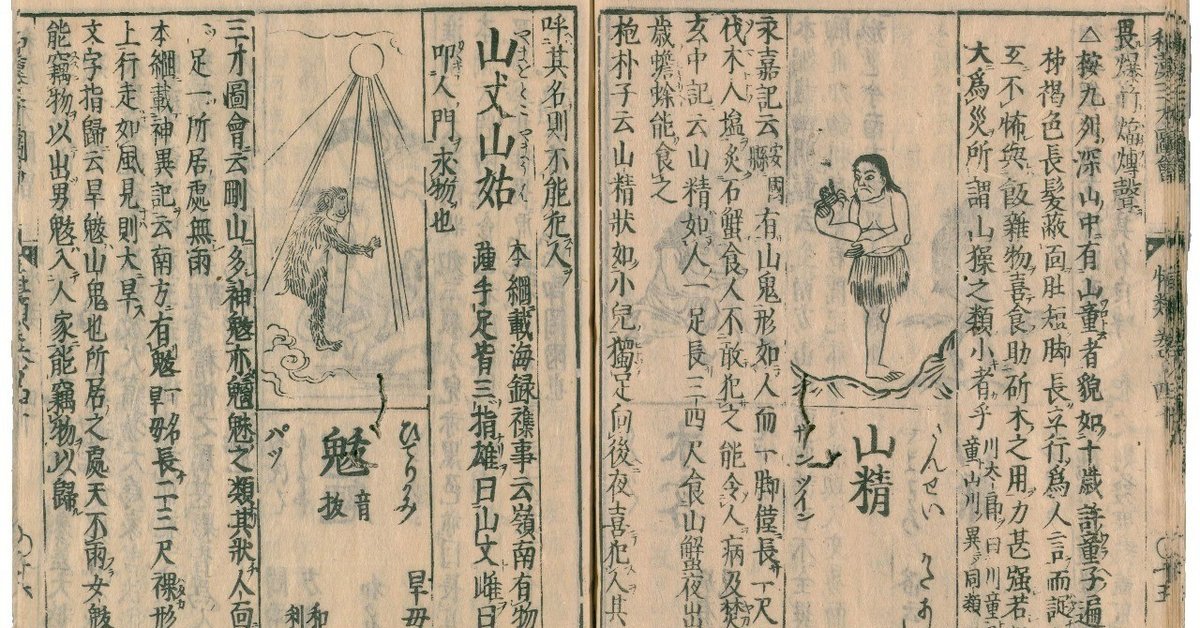 畏爆竹煏煿聲
△按九州深山中有山童者貌如十歳許童子遍
柹褐色長髮蔽面肚短脚長立行爲人言而
互不怖與飯雜物喜食助斫木之用力甚强若
大爲災所謂山𤢖之類小者乎
川太郎曰川童
童山川異同類
さんせい
山精
サンツイン
永嘉記云安國縣有山鬼形如人而一脚僅長一尺
伐木人塩炙石蟹食人不敢犯之能令人病及焚
玄中記云山精如人一足長三四尺食山蟹夜出
歳蟾蜍能食之
抱朴子云山精狀如小兒獨足向後夜喜犯人其
呼其名則不能犯人
山丈山姑
本綱載海録襍事云嶺南有物
踵手足皆三指雄曰山丈雌曰
叩人門求物也
ひでりかみ
魃
音拔
パツ
旱母
三才圖會云剛山多神魃亦魑魅之類其狀人面
足一所居處無雨
本綱載神異記云南方有魃一名旱母長二三尺裸形
上行走如風見則大旱
文字指歸云旱魃山鬼也所居之處天不雨女魃
能竊物以出男魃入人家能竊物以歸